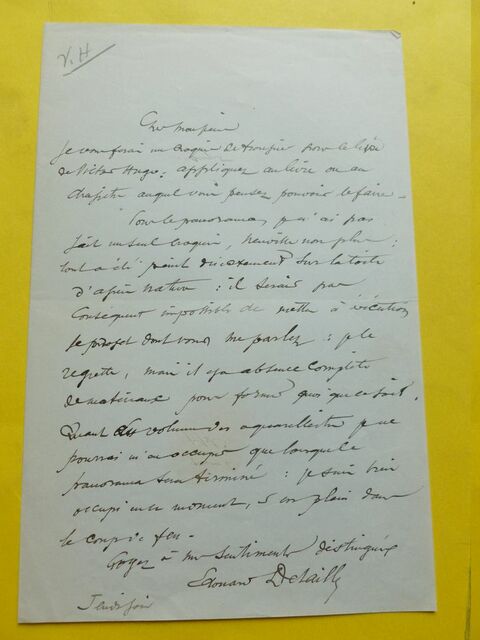 V. H
Cher monsieur
Je vous ferai un croquis de troupier pour le livre
de Victor Hugo; appliquez au livre ou au
chapitre auquel vous pensez pouvoir le faire -
Pour le panorama, je n'ai pas
fait un seul croquis, Neuville non plus;
tout a été peint directement sur la toile
d'après nature : il serait par
conséquent impossible de mettre à exécution
le projet dont vous me parlez : je le
regrette, mais il y a absence complète
de matériaux pour former quoi que ce soit.
Quant au volume des aquarellistes je ne
pourrai m'en occuper que lorsque le
panorama sera terminé : je suis bien
occupé en ce moment, et en plein dans
le coup de feu -
Croyez à mes sentiments distingués
Edouard Detaille
Jeudi soir